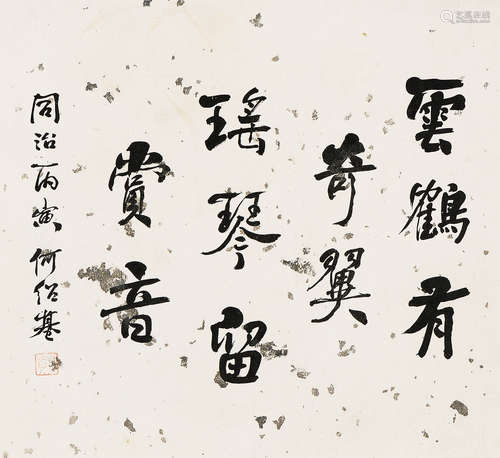 雲鶴有
奇翼
瑤琴留
賞音
同治丙寅 何紹基